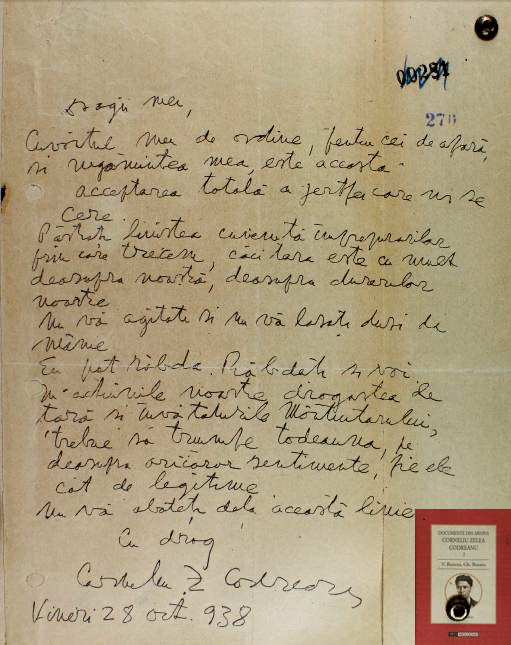 Dragii mei,
Cuvântul meu de ordine, pentru cei de afară,
și rugămintea mea, este aceasta
acceptarea totală a jertfei care ni se
cere.
Păstrați liniștea cuvenită împrejurărilor
prin care trecem, căci țara este cu mult
deasupra noastră, deasupra durerilor
noastre
Nu vă agitați și nu vă lăsați duși de
mânie
Eu pot răbda. Răbdați și voi
În acțiunile noastre, dragostea de
țară și învățăturile Mântuitorului,
trebue să triumfe todeauna, pe
deasupra oricăror sentimente, fie ele
cât de legitime
Nu vă abateți dela această linie
Cu drag
Corneliu Z Codreanu
Vineri 28 oct. 938
DOCUMENTE DIN ARHIVA
CORNELIU ZELEA
CODREANU
1